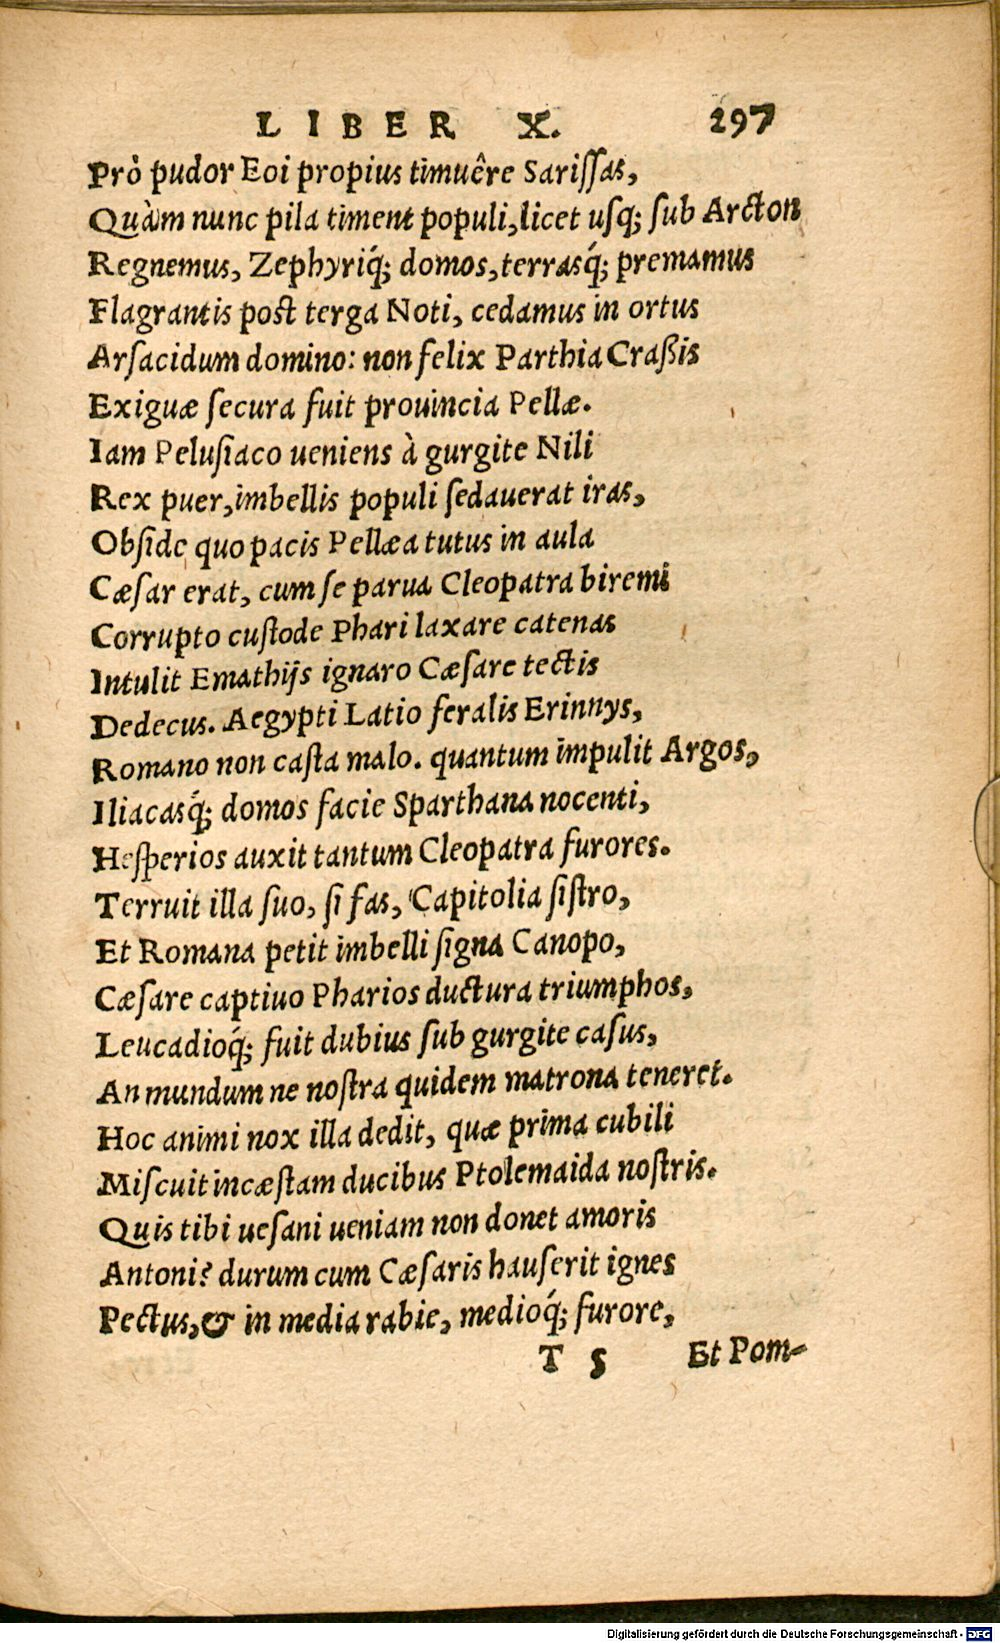 LIBER X. 297
Prò pudor Eoi propius timuêre Sariſſas,
Quàm nunc pila timent populi, licet uſq; ſub Arcton
Regnemus, Zephyriq́; domos, terrasq́; premamus
Flagrantis poſt terga Noti, cedamus in ortus
Arſacidum domino: non felix Parthia Craßis
Exiguæ ſecura fuit prouincia Pellæ.
Iam Peluſiaco ueniens à gurgite Nili
Rex puer, imbellis populi ſedauerat iras,
Obſide quo pacis Pellæa tutus in aula
Cæſar erat, cum ſe parua Cleopatra biremi
Corrupto cuſtode Phari laxare catenas
Intulit Emathijs ignaro Cæſare tectis
Dedecus. Aegypti Latio feralis Erinnys,
Romano non caſta malo. quantum impulit Argos,
Iliacasq́; domos facie Sparthana nocenti,
Heſperios auxit tantum Cleopatra furores.
Terruit illa ſuo, ſi fas, Capitolia ſiſtro,
Et Romana petit imbelli ſigna Canopo,
Cæſare captiuo Pharios ductura triumphos,
Leucadioq́; fuit dubius ſub gurgite caſus,
An mundum ne noſtra quidem matrona teneret.
Hoc animi nox illa dedit, quæ prima cubili
Miſcuit incæſtam ducibus Ptolemaida noſtris.
Quis tibi ueſani ueniam non donet amoris
Antoni? durum cum Cæſaris hauſerit ignes
Pectus, & in media rabie, medioq́; furore,
T 5 Et Pom-
Digitalisierung gefördert durch die Deutsche Forschungsgemeinschaft - DFG